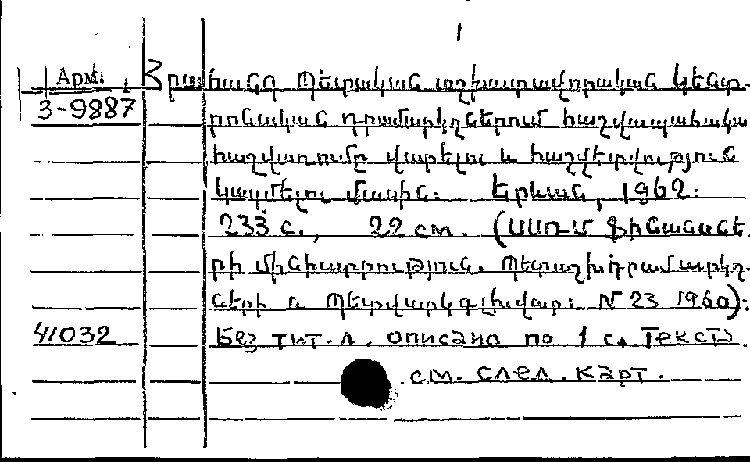 1
Арм. Հրահանգ Պետական աշխատավորական կենտ
3-9887 րոնական դրամարկղներում հաշվապահակա
հաշվառումը վարելու և հաշվետվություն
կազմելու մասին։ Երևան, 1962։
233 с., 22 см. (ՍՍՌՄ Ֆինանսնե
րի մինիստրություն. Պետաշխդրամարկղ
ների և Պետվարկ գլխվար։ N 23 1960)։
41032 Без тит. л. описано по 1 с. текста
см. след. карт.